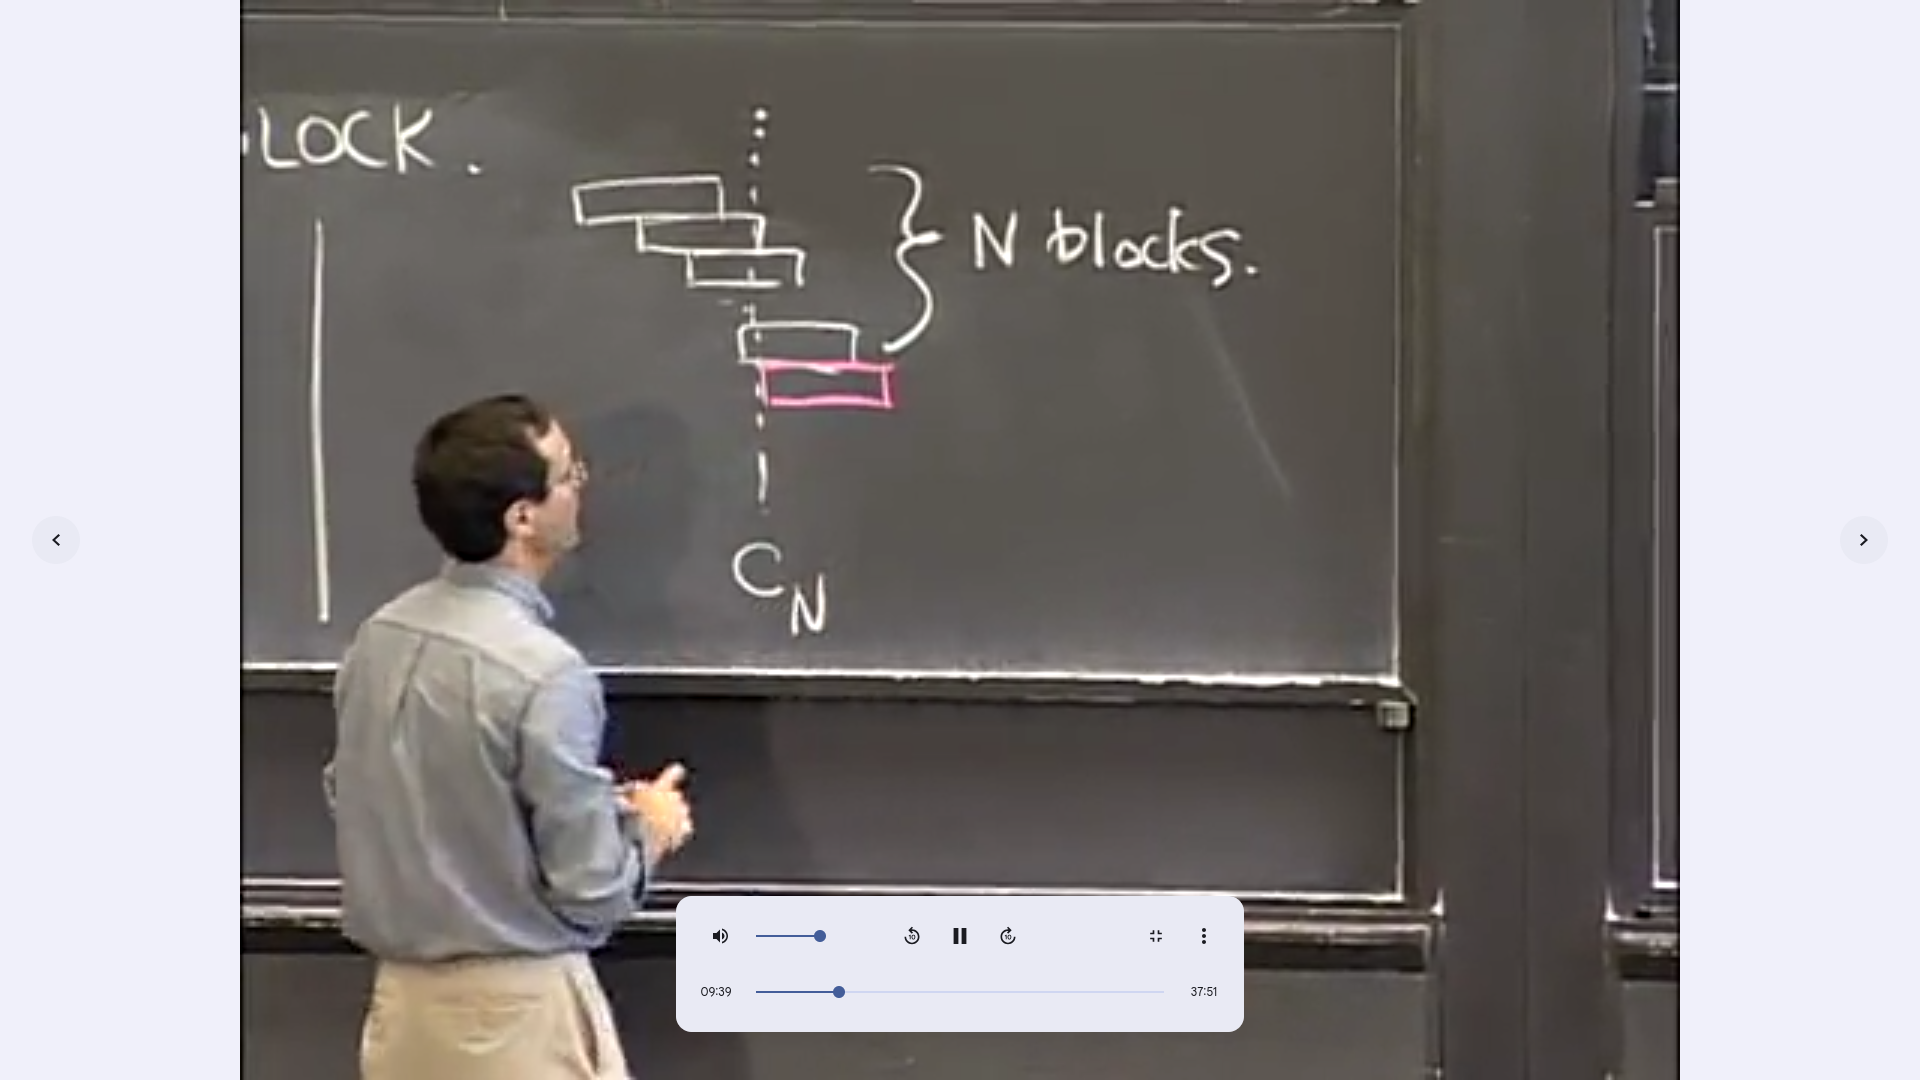 LOCK.
N blocks.
C_N
10
10
09:39
37:51